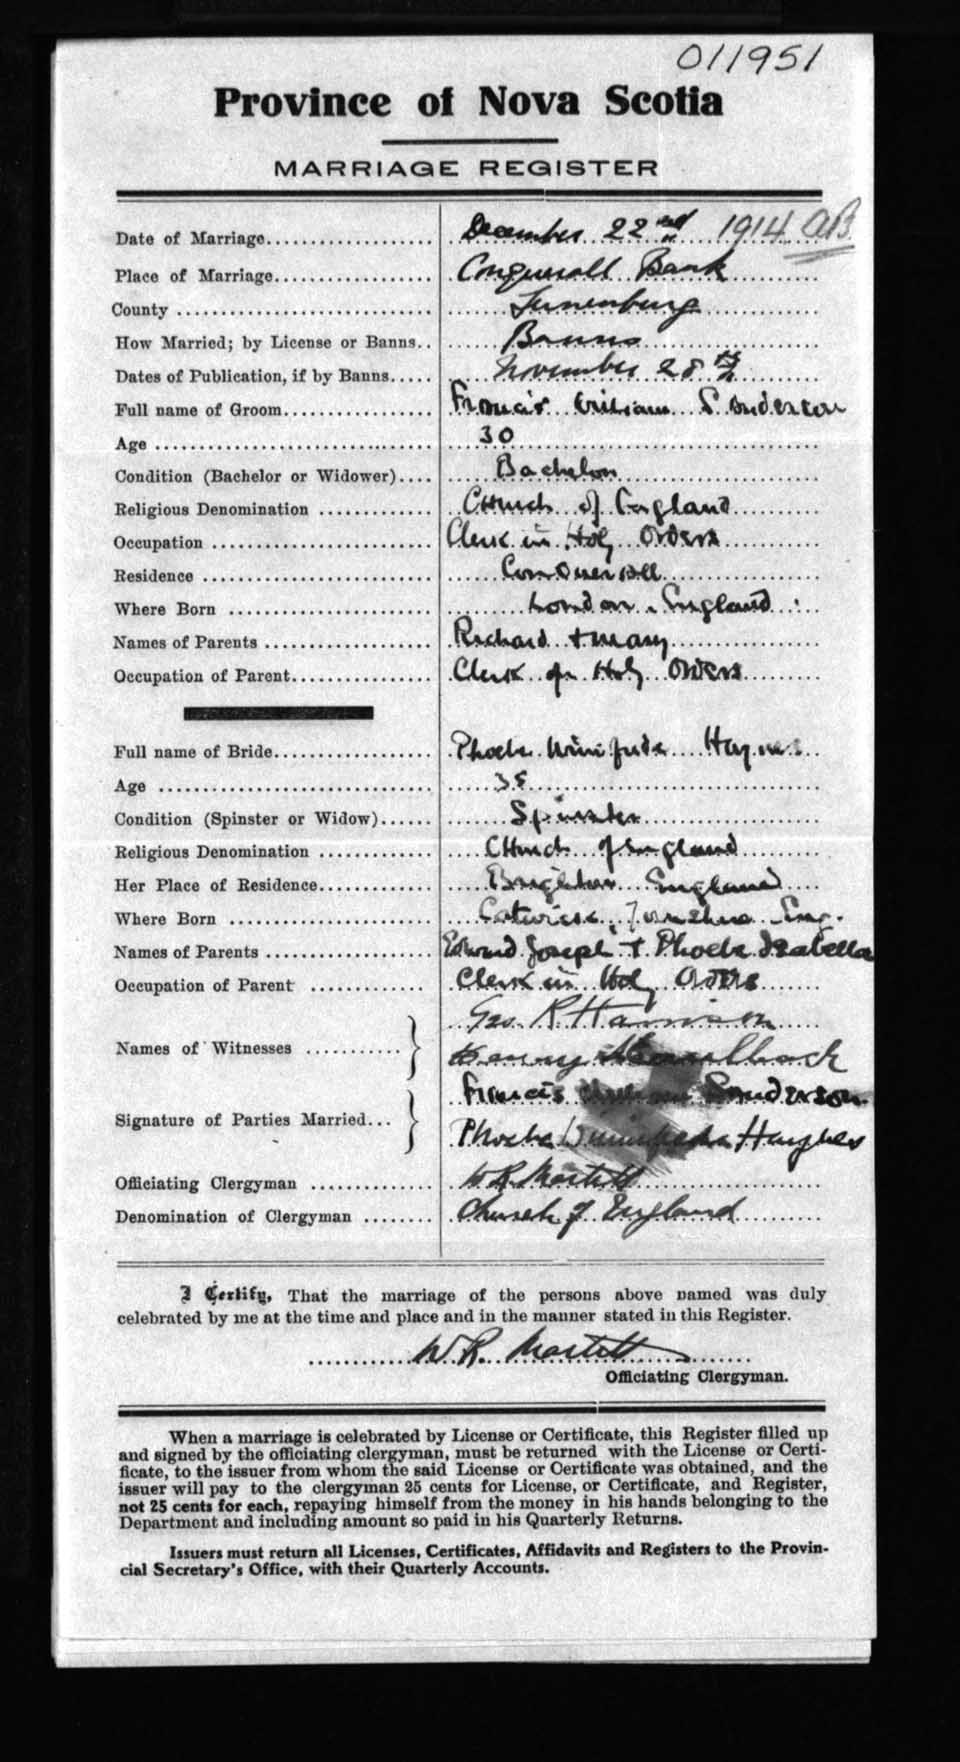 011951
Province of Nova Scotia
MARRIAGE REGISTER
Date of Marriage................... December 22nd 1914 AB
Place of Marriage................... Conquerall Bank
County ............................... Lunenburg
How Married; by License or Banns.. Banns
Dates of Publication, if by Banns..... November 28th
Full name of Groom.................. Francis William Sanderson
Age ................................. 30
Condition (Bachelor or Widower).... Bachelor
Religious Denomination ............. Church of England
Occupation .......................... Clerk in Holy Orders
Residence ........................... Conquerall
Where Born ........................ London, England
Names of Parents .................... Richard + Mary
Occupation of Parent................. Clerk in Holy Orders
Full name of Bride................... Phoebe Winifrede
Age ................................. 35
Condition (Spinster or Widow)...... Spinster
Religious Denomination ............. Church of England
Her Place of Residence.............. Brighton England
Where Born ........................ Eng.
Names of Parents .................... Edward Joseph + Phoebe Isabella
Occupation of Parent ............. Clerk in Holy Orders
Names of Witnesses ........... Geo. R. Harrison
Henry
Signature of Parties Married... Francis William Sanderson
Phoebe Winifrede Hughes
Officiating Clergyman .............. W R
Denomination of Clergyman ........ Church of England
I Certify, That the marriage of the persons above named was duly
celebrated by me at the time and place and in the manner stated in this Register.
W. R.
Officiating Clergyman.
When a marriage is celebrated by License or Certificate, this Register filled up
and signed by the officiating clergyman, must be returned with the License or Certi-
ficate, to the issuer from whom the said License or Certificate was obtained, and the
issuer will pay to the clergyman 25 cents for License, or Certificate, and Register,
not 25 cents for each, repaying himself from the money in his hands belonging to the
Department and including amount so paid in his Quarterly Returns.
Issuers must return all Licenses, Certificates, Affidavits and Registers to the Provin-
cial Secretary's Office, with their Quarterly Accounts.